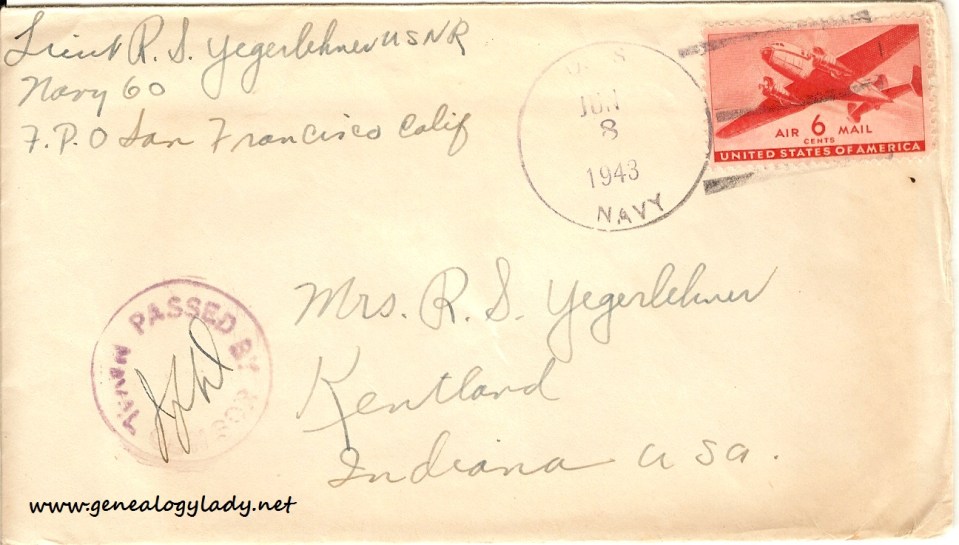 Lieut R. S. Yegerlehner USNR
Navy 60
F.P.O San Francisco Calif
U.S.
JUN
8
1943
NAVY
AIR 6 MAIL
CENTS
UNITED STATES OF AMERICA
PASSED BY
NAVAL CENSOR
Mrs. R. S. Yegerlehner
Kentland
Indiana USA.
www.genealogylady.net